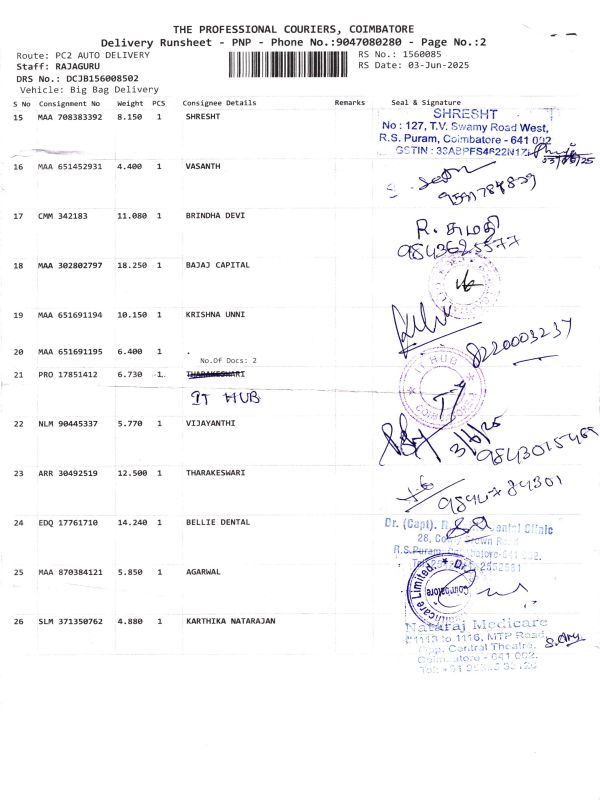 THE PROFESSIONAL COURIERS, COIMBATORE
Delivery Runsheet - PNP - Phone No.:9047080280 - Page No.:2
Route: PC2 AUTO DELIVERY RS No.: 1560085
Staff: RAJAGURU RS Date: 03-Jun-2025
DRS No.: DCJB156008502
Vehicle: Big Bag Delivery
S No Consignment No Weight PCS Consignee Details Remarks Seal & Signature
15 MAA 708383392 8.150 1 SHRESHT
SHRESHT
No : 127, T.V. Swamy Road West,
R.S. Puram, Coimbatore - 641 002
GSTIN :
03/06/25
16 MAA 651452931 4.400 1 VASANTH
17 CMM 342183 11.080 1 BRINDHA DEVI
R. சுமதி
18 MAA 302802797 18.250 1 BAJAJ CAPITAL
19 MAA 651691194 10.150 1 KRISHNA UNNI
8220003237
20 MAA 651691195 6.400 1 .
No.Of Docs: 2
21 PRO 17851412 6.730 1 THARAKESWARI
IT HUB
IT HUB
COIMBATORE
22 NLM 90445337 5.770 1 VIJAYANTHI
3/6/25
9843015469
23 ARR 30492519 12.500 1 THARAKESWARI
24 EDQ 17761710 14.240 1 BELLIE DENTAL
Dr. (Capt). Dental Clinic
28, Road
R.S.Puram, Coimbatore-641 002.
25 MAA 870384121 5.850 1 AGARWAL
Coimbatore
26 SLM 371350762 4.880 1 KARTHIKA NATARAJAN
Nataraj Medicare
1113 to 1116, MTP Road,
Opp. Central Theatre,
Coimbatore - 641 002.